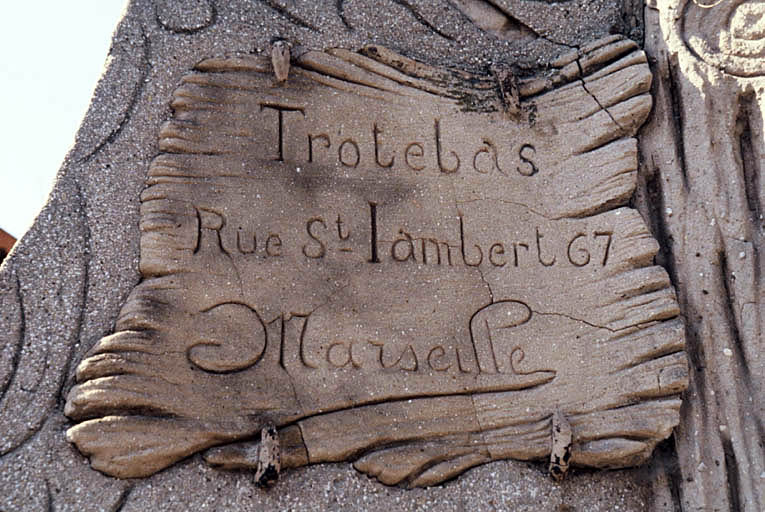 Trotebas
Rue St Lambert 67
Marseille